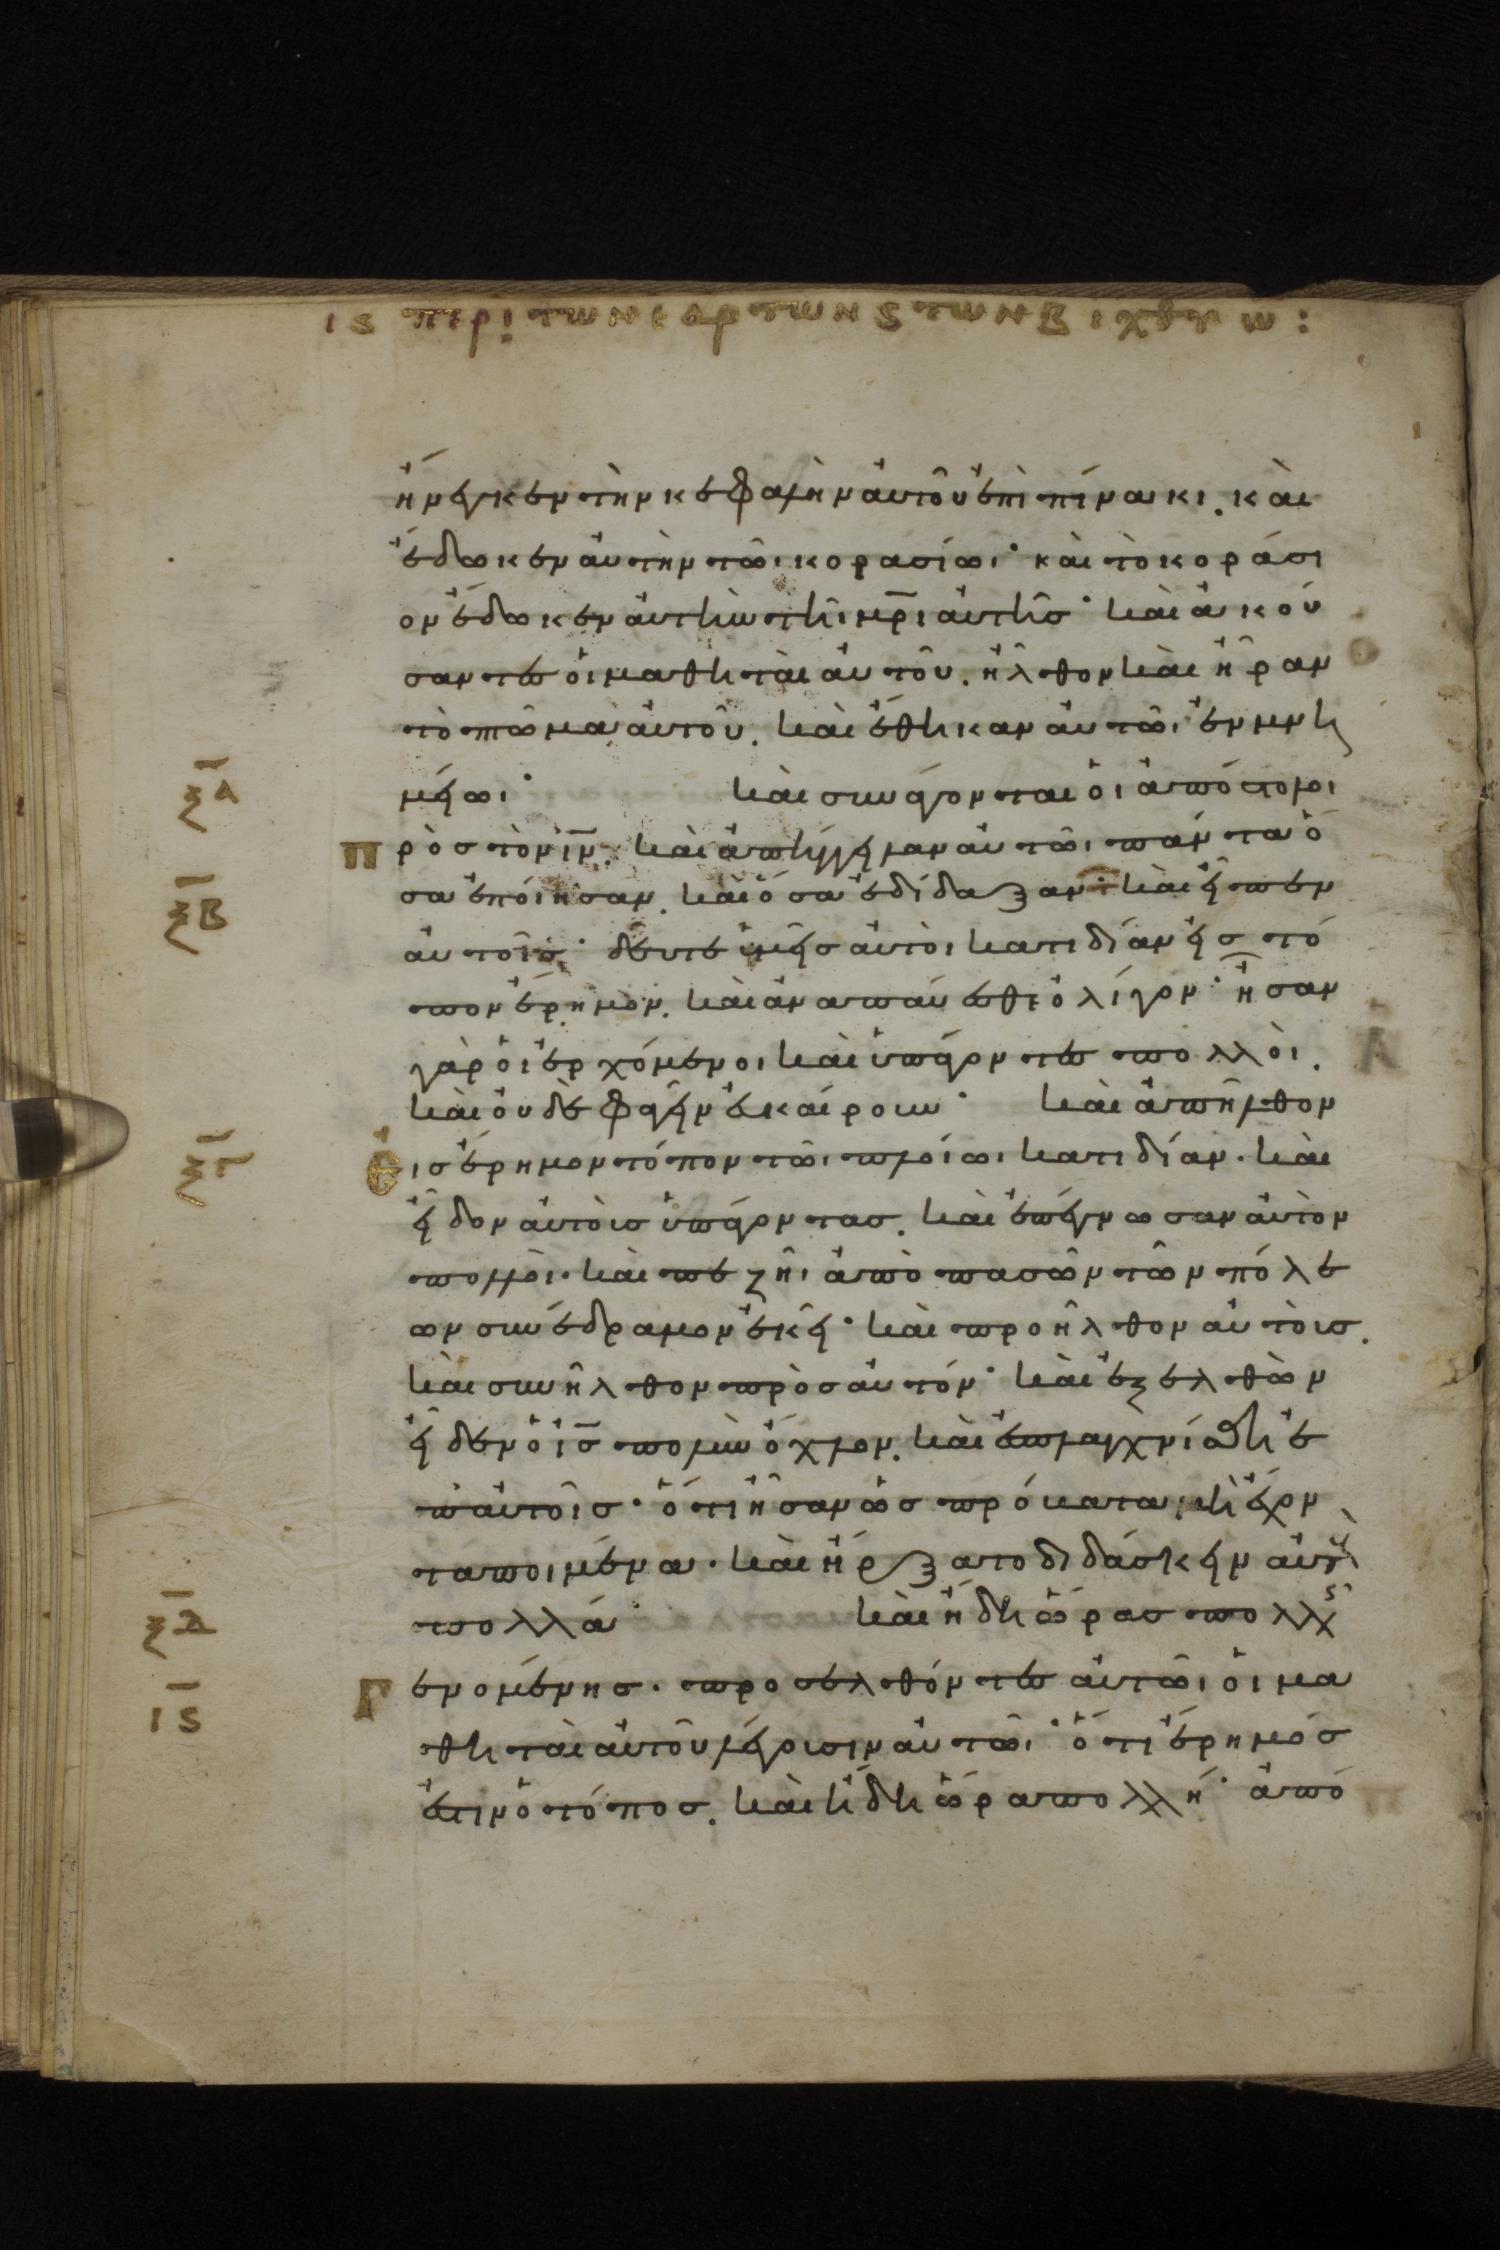 ις περὶ των ε αρτων ς των β ιχθυω :
ἤνεγκεν τὴν κεφαλὴν ἀυτοῦ ἐπὶ πίνακι. κὰι
ἔδωκεν ἀυτὴν τῶι κορασίωι· κὰι τὸ κοράσι
ον ἔδωκεν ἀυτὴν τῆι μρ̅ι ἀυτῆσ· κὰι ἀκού
σαντεσ ὁι μαθητὰι ἀυτοῦ. ἦλθον κὰι ἦραν
τὸ πῶμα ἀυτοῦ. κὰι ἔθηκαν ἀυτῶι ἐν μνη
ξ̅α μείωι· κὰι συνάγονται ὁι ἀπόστολοι
πρὸσ τὸν ι̅ν. κὰι ἀπήγγειλαν ἀυτῶι πάντα ὅ
ξ̅β σα ἐποίησαν. κὰι ὅσα ἐδίδαξαν· κὰι εἶπεν
ἀυτοῖσ· δεῦτε ὑμεῖσ ἀυτὸι κατιδίαν εἰσ τό
πον ἔρημον. κὰι ἀναπαύεσθε ὀλίγον· ἦσαν
γὰρ ὁι ἐρχόμενοι κὰι ὑπάγοντεσ πολλὸι.
κὰι ὀυδὲ φαγεῖν ἐυκαίρουν· κὰι ἀπῆλθον
ξ̅γ εἰσ ἔρημον τόπον τῶι πλοίωι κατιδίαν. κὰι
εἶδον ἀυτὸυσ ὑπάγοντασ. κὰι ἐπέγνωσαν ἀυτὸν
πολλὸι. κὰι πεζῆι ἀπὸ πασῶν τῶν πόλε
ων συνέδραμον ἐκεῖ· κὰι προῆλθον ἀυτὸυσ.
κὰι συνῆλθον πρὸσ ἀυτόν· κὰι ἐξελθὼν
εἶδεν ὁ ι̅σ πολὺν ὄχλον. κὰι ἐσπλαγχνίσθη ἐ
π ἀυτοῖσ· ὅτι ἦσαν ὡσ πρόβατα μὴ ἔχον
τα ποιμένα. κὰι ἤρξατο διδάσκειν ἀυτοὺς
ξ̅δ πολλά· κὰι ἤδη ὥρασ πολλῆς
ι̅ς γενομένησ. προσελθόντεσ ἀυτῶι ὁι μα
θητὰι ἀυτοῦ λέγουσιν ἀυτῶι· ὅτι ἔρημόσ
ἐστιν ὁ τόποσ. κὰι ἤδη ὥρα πολλή· ἀπό